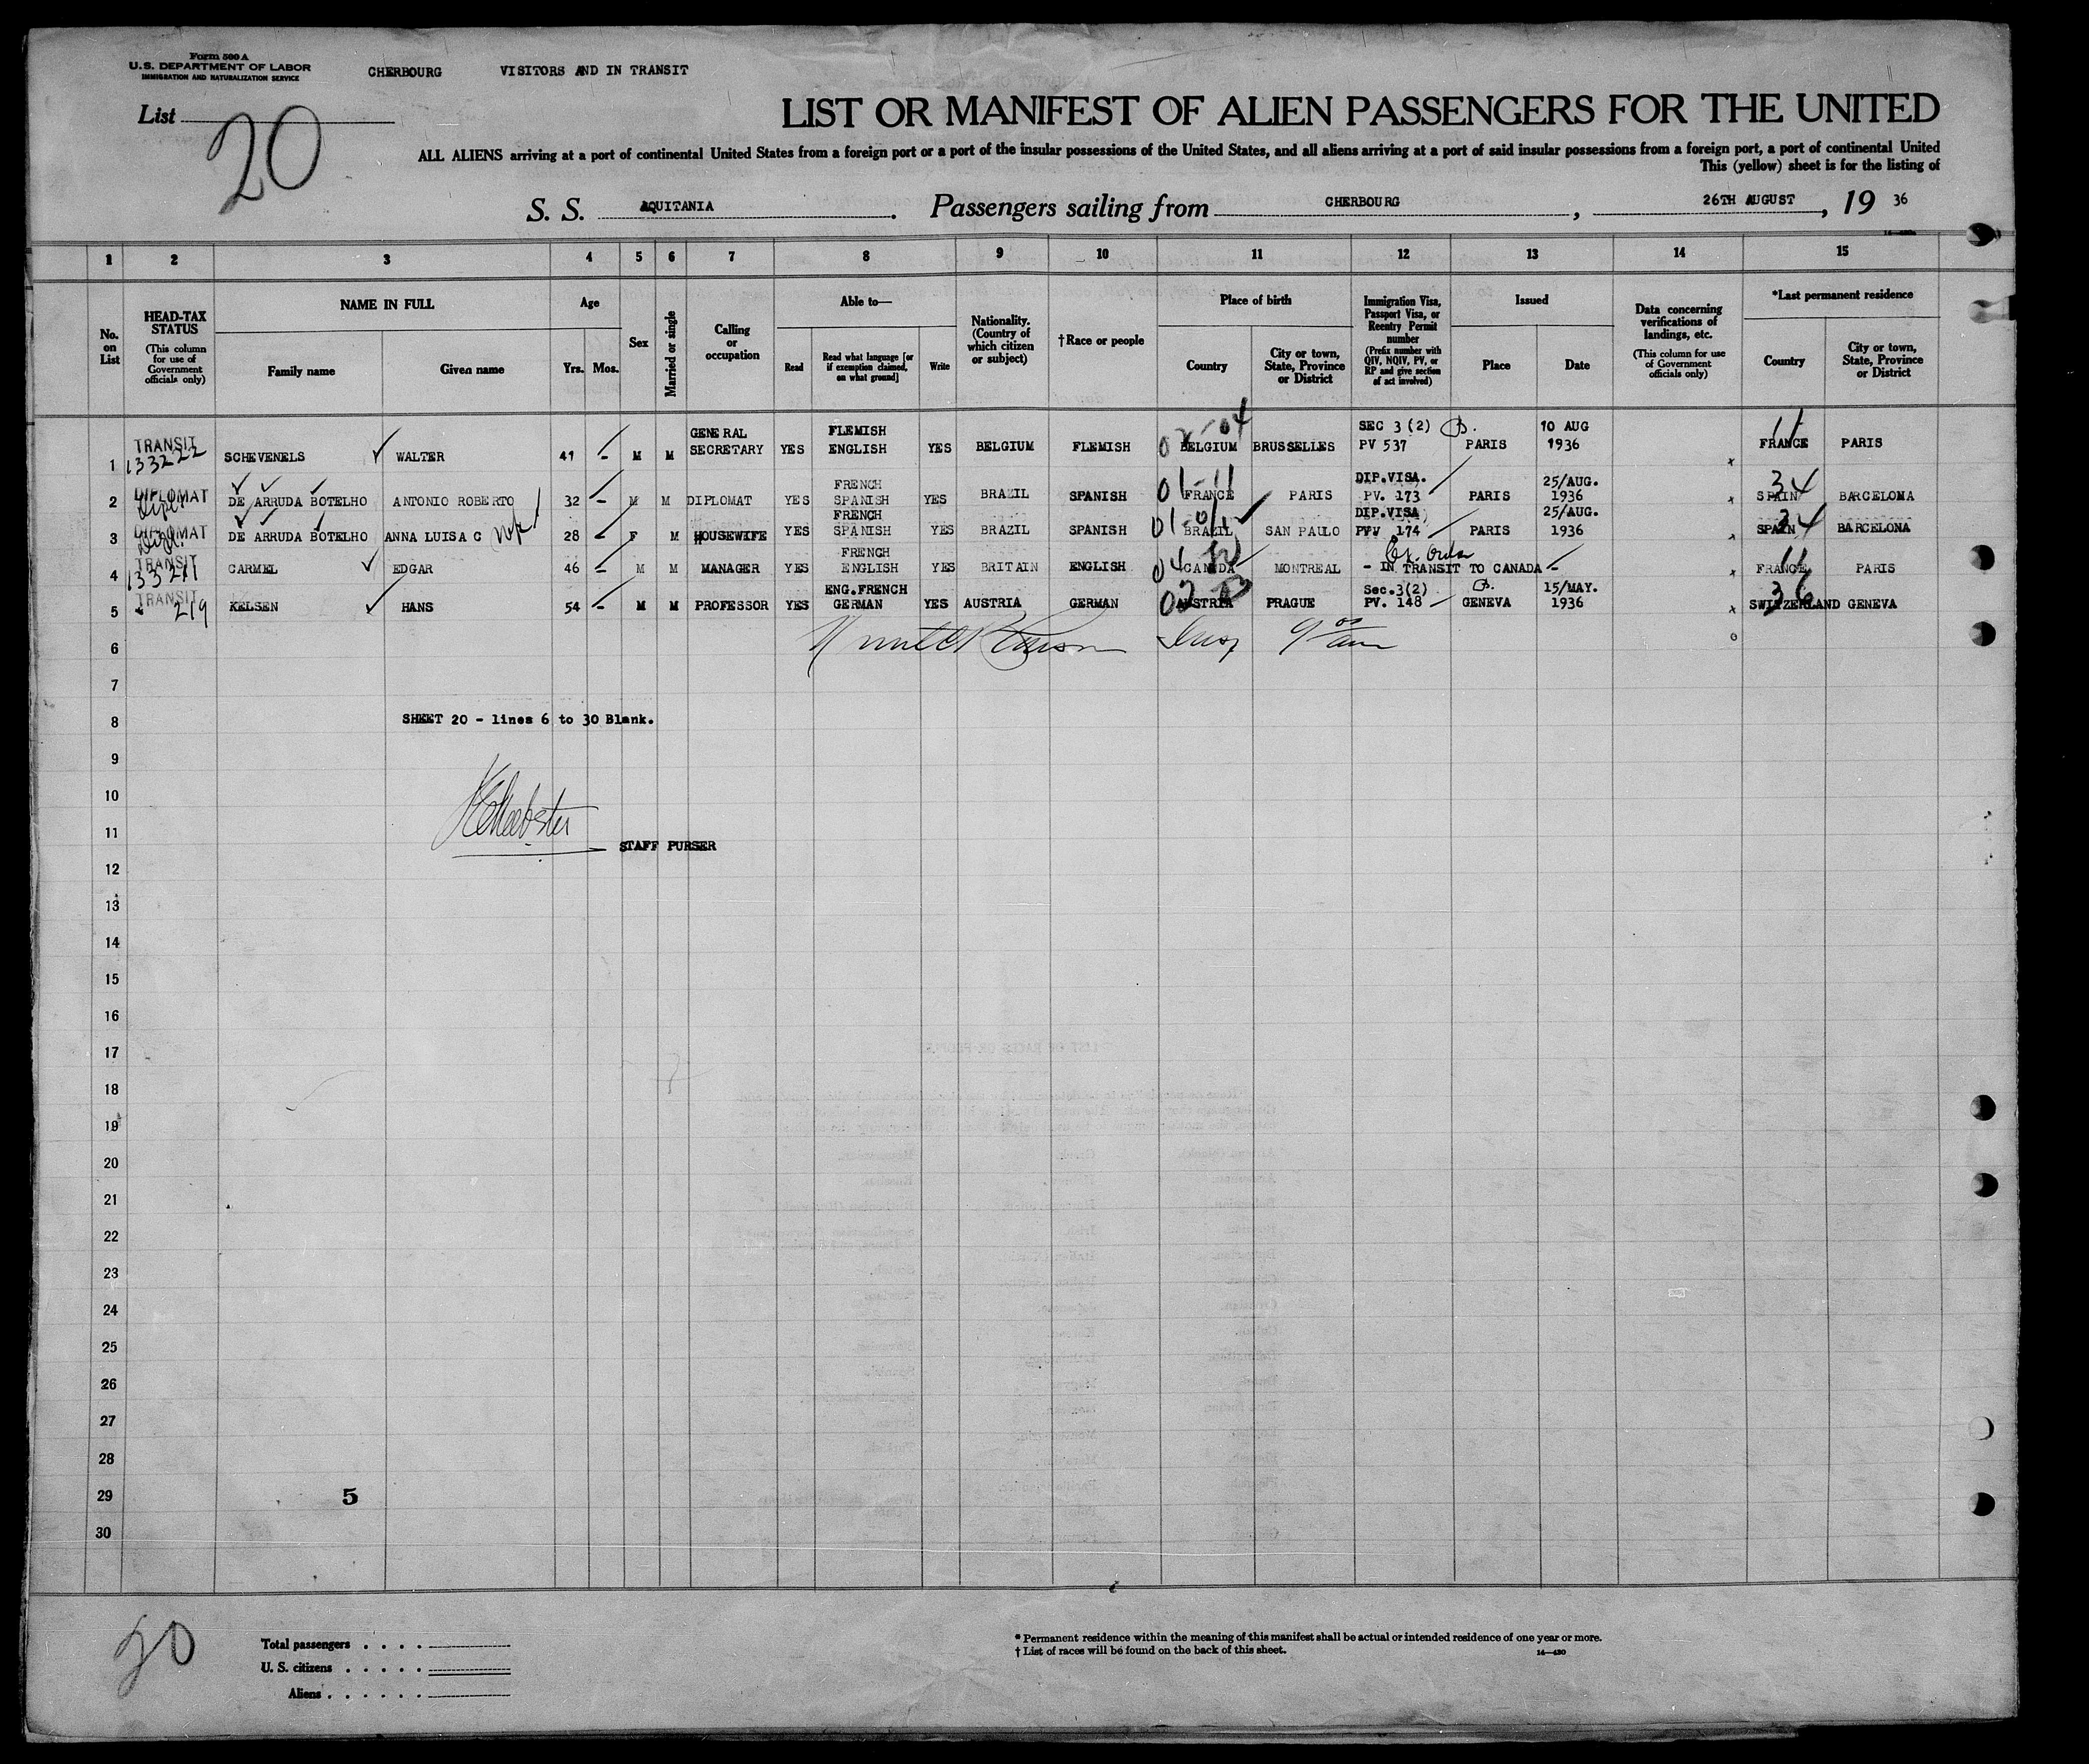 Form 500 A
U. S. DEPARTMENT OF LABOR
IMMIGRATION AND NATURALIZATION SERVICE
CHERBOURG VISITORS AND IN TRANSIT
List 20
LIST OR MANIFEST OF ALIEN PASSENGERS FOR THE UNITED
ALL ALIENS arriving at a port of continental United States from a foreign port or a port of the insular possessions of the United States, and all aliens arriving at a port of said insular possessions from a foreign port, a port of continental United
This (yellow) sheet is for the listing of
S. S. AQUITANIA. Passengers sailing from CHERBOURG, 26TH AUGUST, 19 36
1 2 3 4 5 6 7 8 9 10 11 12 13 14 15
No. on List
HEAD-TAX STATUS
(This column for use of Government officials only)
NAME IN FULL
Family name
Given name
Age
Yrs. Mos.
Sex
Married or single
Calling or occupation
Able to—
Read
Read what language [or if exemption claimed, on what ground]
Write
Nationality. (Country of which citizen or subject)
†Race or people
Place of birth
Country
City or town, State, Province or District
Immigration Visa, Passport Visa, or Reentry Permit number
(Prefix number with QIV, NQIV, PV, or RP and give section of act involved)
Issued
Place
Date
Data concerning verifications of landings, etc.
(This column for use of Government officials only)
*Last permanent residence
Country
City or town, State, Province or District
1 TRANSIT 133222 SCHEVENELS WALTER 41 - M M GENERAL SECRETARY YES FLEMISH ENGLISH YES BELGIUM FLEMISH BELGIUM BRUSSELLES SEC 3 (2) PV 537 PARIS 10 AUG 1936 x FRANCE PARIS
2 DIPLOMAT DE ARRUDA BOTELHO ANTONIO ROBERTO 32 - M M DIPLOMAT YES FRENCH SPANISH YES BRAZIL SPANISH 01-11 FRANCE PARIS DIP.VISA. PV. 173 PARIS 25/AUG. 1936 x 34 SPAIN BARCELONA
3 DIPLOMAT DE ARRUDA BOTELHO ANNA LUISA C 28 - F M HOUSEWIFE YES FRENCH SPANISH YES BRAZIL SPANISH BRAZIL SAN PAULO DIP.VISA PPV 174 PARIS 25/AUG. 1936 x 34 SPAIN BARCELONA
4 TRANSIT 133211 CARMEL EDGAR 46 - M M MANAGER YES FRENCH ENGLISH YES BRITAIN ENGLISH CANADA MONTREAL - IN TRANSIT TO CANADA - x FRANCE PARIS
5 TRANSIT 219 KELSEN HANS 54 - M M PROFESSOR YES ENG.FRENCH GERMAN YES AUSTRIA GERMAN AUSTRIA PRAGUE Sec.3(2) PV. 148 GENEVA 15/MAY. 1936 x 36 SWITZERLAND GENEVA
6
7
8 SHEET 20 - lines 6 to 30 Blank.
9
10
11 STAFF PURSER
12
13
14
15
16
17
18
19
20
21
22
23
24
25
26
27
28
29 5
30
20
Total passengers . . . .
U. S. citizens . . . . .
Aliens . . . . . .
* Permanent residence within the meaning of this manifest shall be actual or intended residence of one year or more.
† List of races will be found on the back of this sheet.